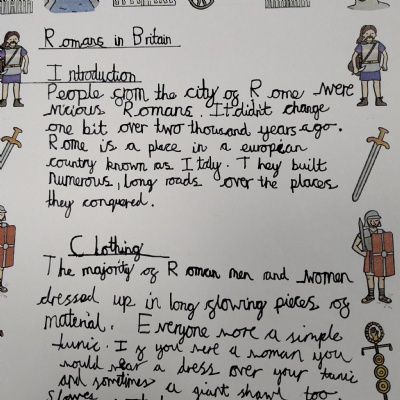 Romans in Britain
Introduction
People from the city of Rome were
vicious Romans. It didn't change
one bit over two thousand years ago.
Rome is a place in a european
country known as Italy. They built
numerous, long roads over the places
they conquered.
Clothing
The majority of Roman men and women
dressed up in long flowing pieces of
material. Everyone wore a simple
tunic. If you were a woman you
would wear a dress over your tunic
and sometimes a giant shawl too.
Slaves